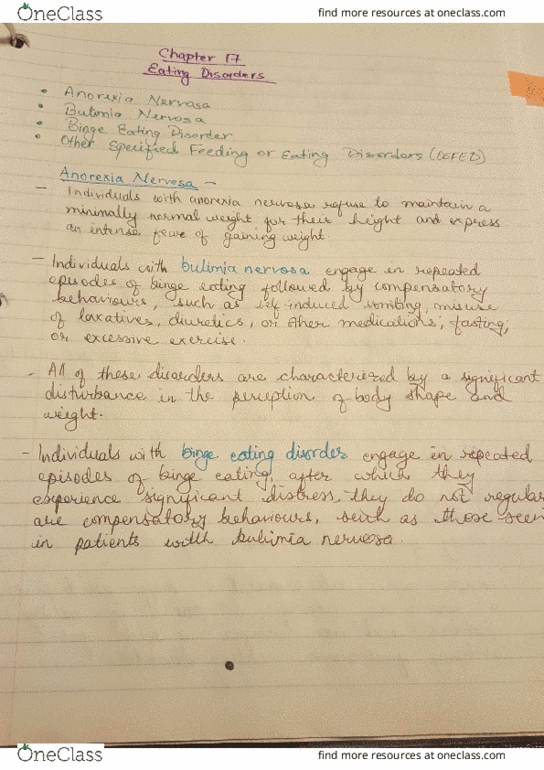 OneClass find more resources at oneclass.com
Chapter 17
Eating Disorders
• Anorexia Nervosa
• Bulimia Nervosa
• Binge Eating Disorder
• Other Specified Feeding or Eating Disorders (OSFED)
Anorexia Nervosa -
- Individuals with anorexia nervosa refuse to maintain a
minimally normal weight for their height and express
an intense fear of gaining weight.
- Individuals with bulimia nervosa engage in repeated
episodes of binge eating followed by compensatory
behaviours, such as self induced vomiting, misuse
of laxatives, diuretics, or other medications; fasting;
or excessive exercise.
- All of these disorders are characterized by a significant
disturbance in the perception of body shape and
weight.
- Individuals with binge eating disorder engage in repeated
episodes of binge eating, after which they
experience significant distress, they do not regular
are compensatory behaviours, such as those seen
in patients with bulimia nervosa.
OneClass find more resources at oneclass.com